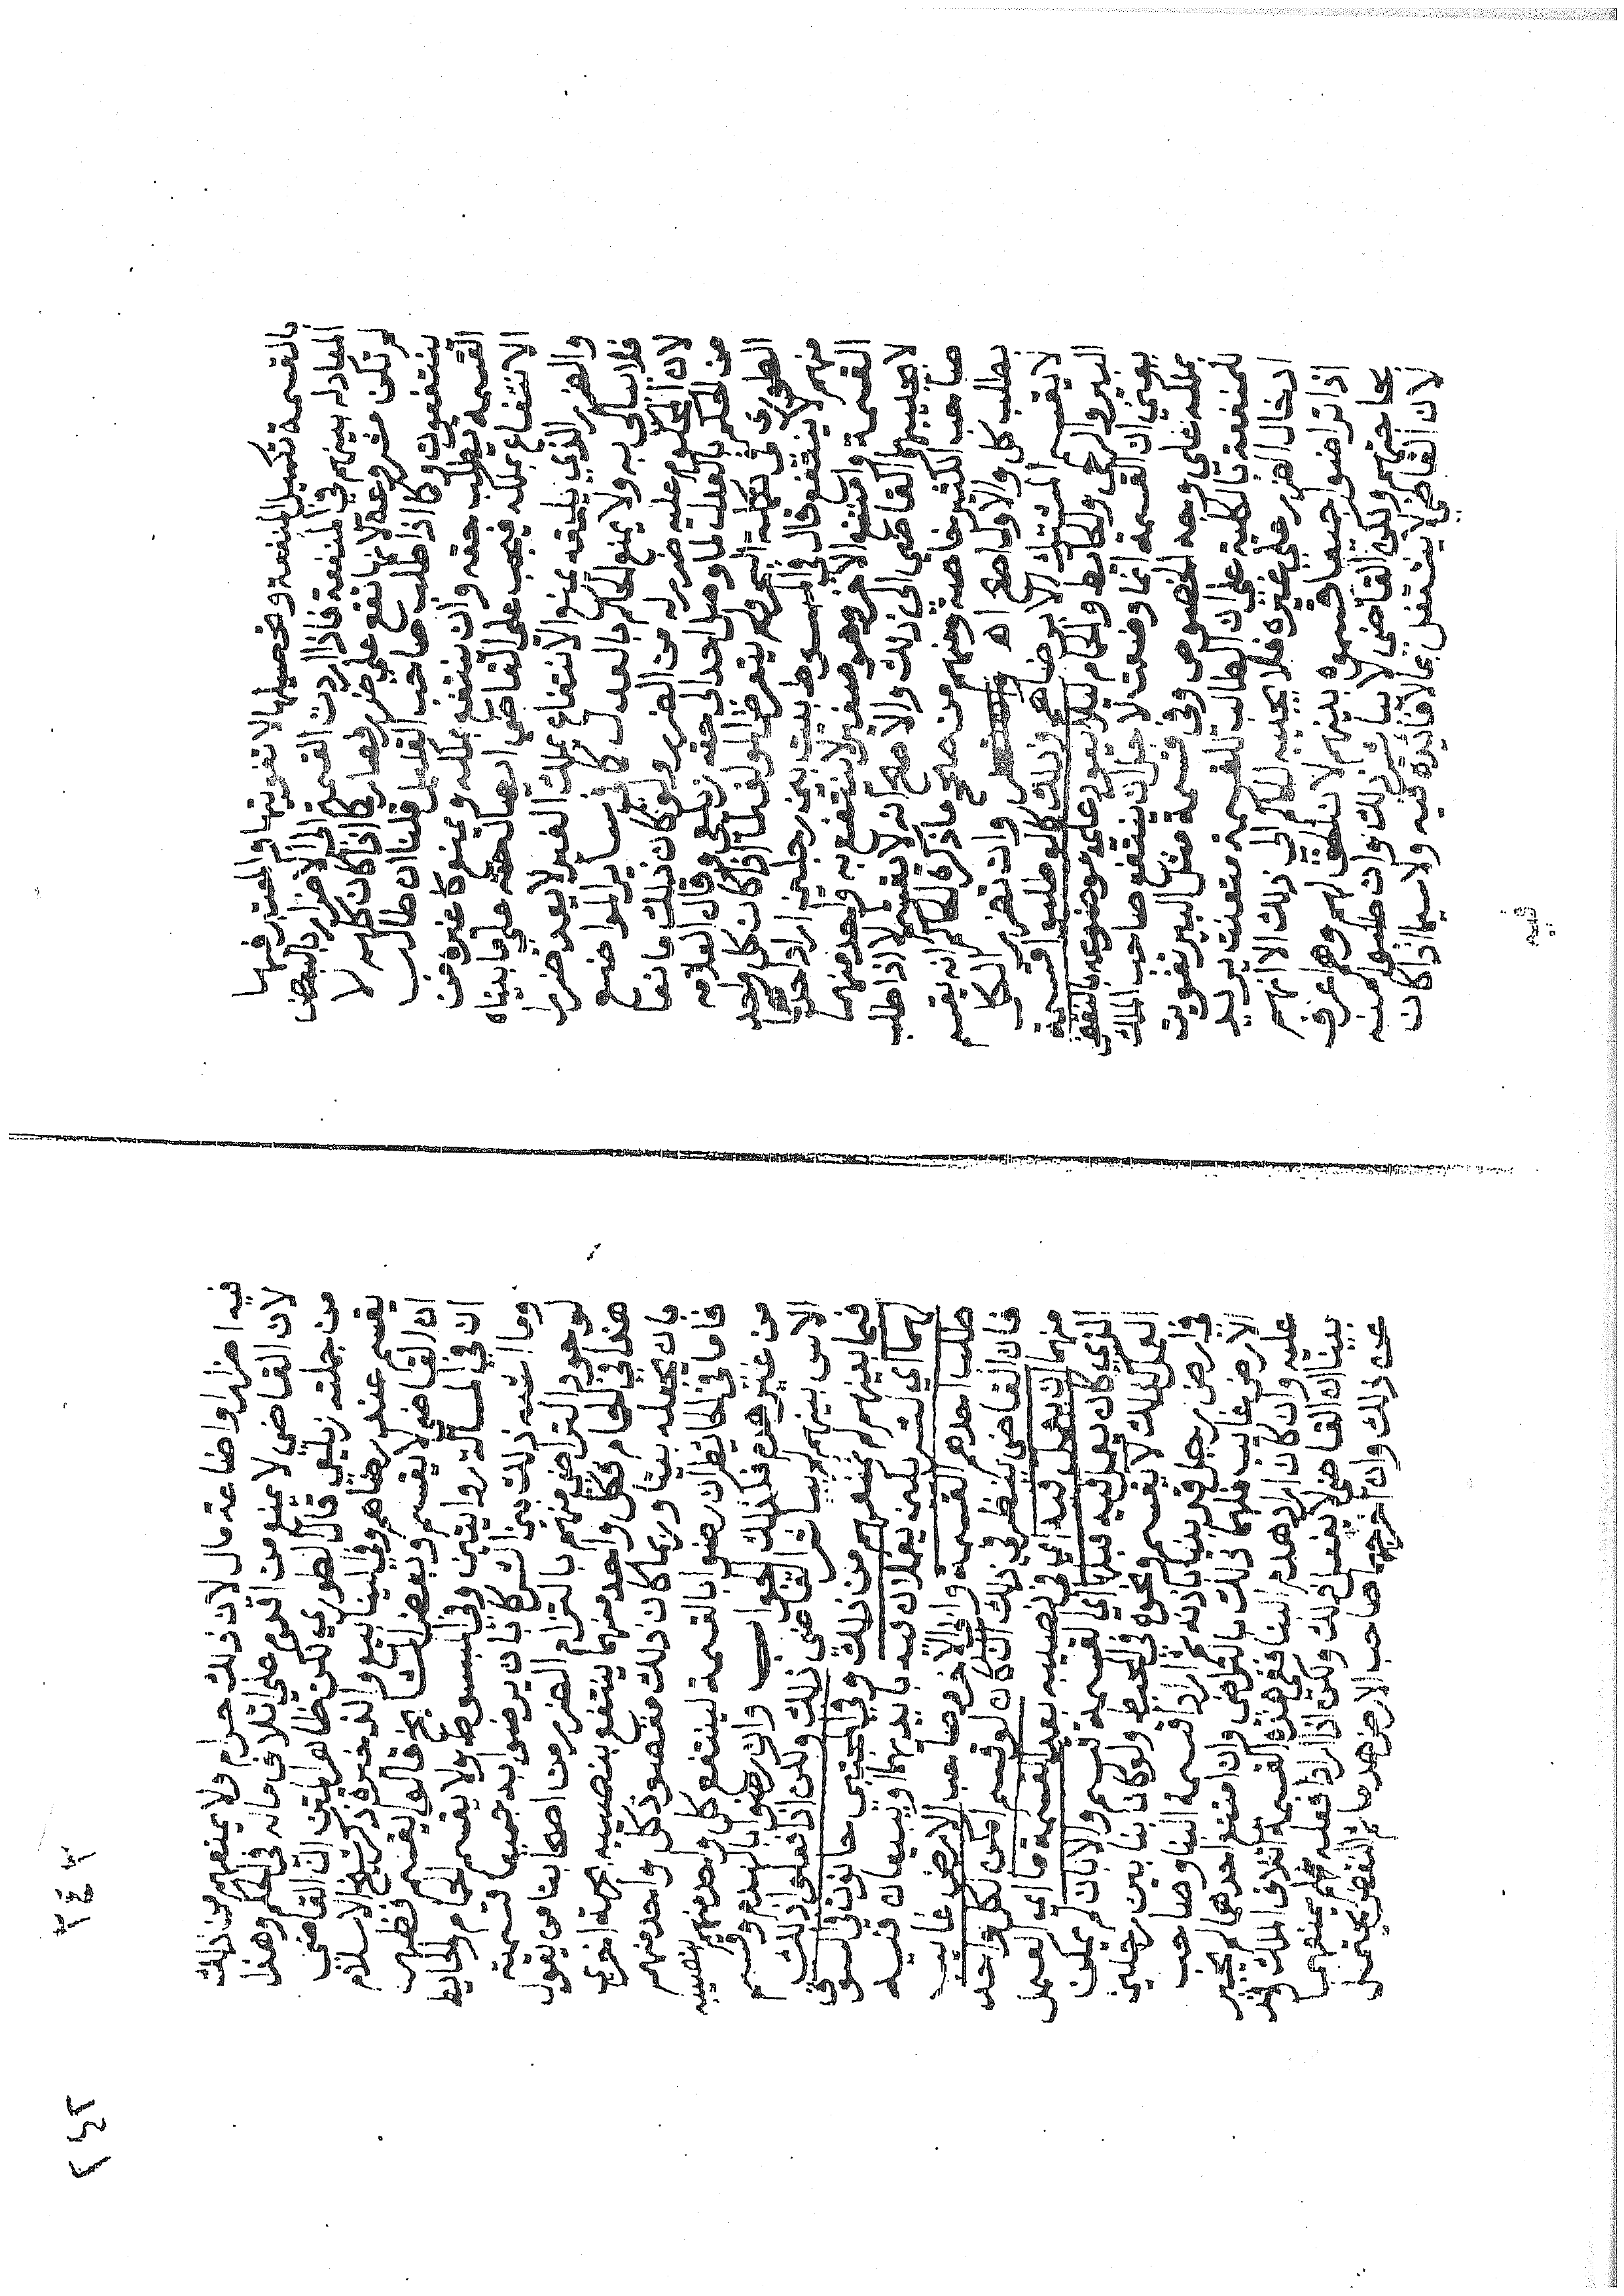 بالقسمة تكميل المنفعة وتحصيلها لا تفويتها والمعتبر فيها
المعادله بينهم في المنفعة فاذا اردت القسمة الى الاضرار بالبعض
لم تكن مشروعة لانها تقع على ضرر فصار كما اذا كان كلهم لا
ينتفعون وكما اذا طلب صاحب القليل قلنا ان طالب
القسمة يطلب حقه وان ينتفع بملكه ويمنع غيره من
الانتفاع بملكه فيجب على القاضي ايصال حقه على ما بيناه
والضرر الذي يلحقه بمنع الانتفاع بملك الغير لا يعد ضررا
فلا يبالى به ولا يمنع الحكم بالعدل كما في سائر المواضع
لان المحكوم عليه ضرر له من الضرر ولو كان ذلك مانعا
من الحكم بالعدل لما وصل احد الى حقه زيلعي وقال العلامه
الطوري في تكملة البحر ولم يتعرض المؤلف لما اذا كان كل واحد
منهم لا ينتفع قال في المبسوط بيت بين رجلين اراد احدهما
القسمة وامتنع الاخر وهو صغير لا ينتفع به واحد منهما
لا يجيبهما القاضي الى ذلك والاصح انه لا يقسم الا اذا طلب
صاحب الكثير خاصة ومنهم من صحح ما ذكره الحاكم انه يقسم
بطلب كل والاول اصح اه وان تضرر الكل
لا يقسم المشترك الا برضاهم وذلك كما لو طلبوا قسمة
البير والرحى والحائط والحمام لئلا يعود على موضوعه بالنقض
يعني ان القسمة انما وضعت لاجل ان ينتفع صاحب الملك
بملكه على وجه الخصوص وفي قسمة مثل البير تفويت
للمنفعة بالكلية على ان الطالب للقسمة متعنت يريد
ادخال الضرر على غيره فلا يجيبه الحاكم الى ذلك الا انهم
اذا تراضوا جميعا قسموه بينهم لان الحق لهم وهم اعرف
بحاجتهم ولكن القاضي لا يباشر ذلك وان طلبوا منه
لان القاضي لا يشتغل بما لا فائدة فيه ولا سيما اذا كان
فيه اضرار او اضاعة مال لان ذلك حرام ولا يمنعهم من ذلك
لان القاضي لا يمنع من اقدم على اتلاف ماله في الحكم وهذا
من جملته زيلعي قال الطوري لكن ظاهر المتن ان القاضي
يقسم عند رضاهم وفي الينابيع والذخيرة ذكر شيخ الاسلام
ان القاضي لا يقسم وبعض المشايخ قالوا يقسم فظهر
ان في المسالة روايتين وفي المبسوط ولا يقسم الحمام والحايط
وما اشبه ذلك بين الشركا الا ان يرضوا به جميعا قسمة
لوجود التراضي منهم بالتزام الضرر من اصحابنا من يقول
هذا في الحمام فكل واحد منهما ينتفع بنصيبه بجهة اخرى
بان يجعله بيتا وربما كان ذلك مقصود كل واحد منهم
فاما في الحايط ان رضوا بالقسمة لينتفع كل واحد منهم بنصيبه
من غير هدم فكذلك الجواب وان رضوا بالهدم وقسم
الاس بينهم لم يباشر القاضي ذلك ولكن اذا فعلوا ذلك
فيما بينهم لم يمنعهم من ذلك وفي المجتبى حانوت في السوق
لهما اي لشريكين يعملان فيه بايديهما او يبيعان فيه
طلب احدهم القسمة وابى الاخر وصاحب الارض غايب
فان القاضي ينظر في ذلك ان كان لو قسم امكن لكل واحد
منهما ان يعمل فيه اي في نصيبه بعد القسمة ما اي العمل
الذي كان يعمل فيه قبل اي القسمة قسم والا بان لم يمكن
العمل كذلك لا يقسم ونحوه في المحيط ولو كان بنا بين رجلين
في ارض رجل قد بنيا باذنه ثم ارادا قسمة البنا وصاحب
الارض غايب فلهما ذلك بالتراضي وان امتنع احدهما لم يجبر
عليه وان كان ارادا هدم البنا ففي هذه القسمة اتلاف الملك وقد
بينا ان القاضي لا يفعل ذلك ولكن اذا ارادا فعله لم يمنعهما
عن ذلك وان اخرجهما صاحب الارض هدماه ثم النقض يحتمل
٢٤٢
٢٤٢